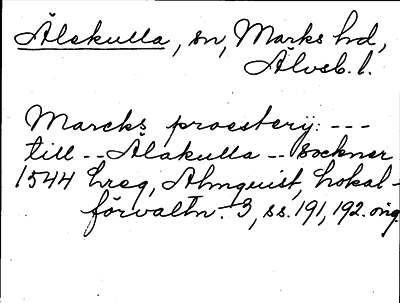 Älekulla, sn, Marks hd,
Älvsb. l.
Marckš proestery: ---
till -- Älakulla -- Sockner
1544 hreg, Almquist, Lokal-
förvaltn. 3, ss. 191, 192. orig.